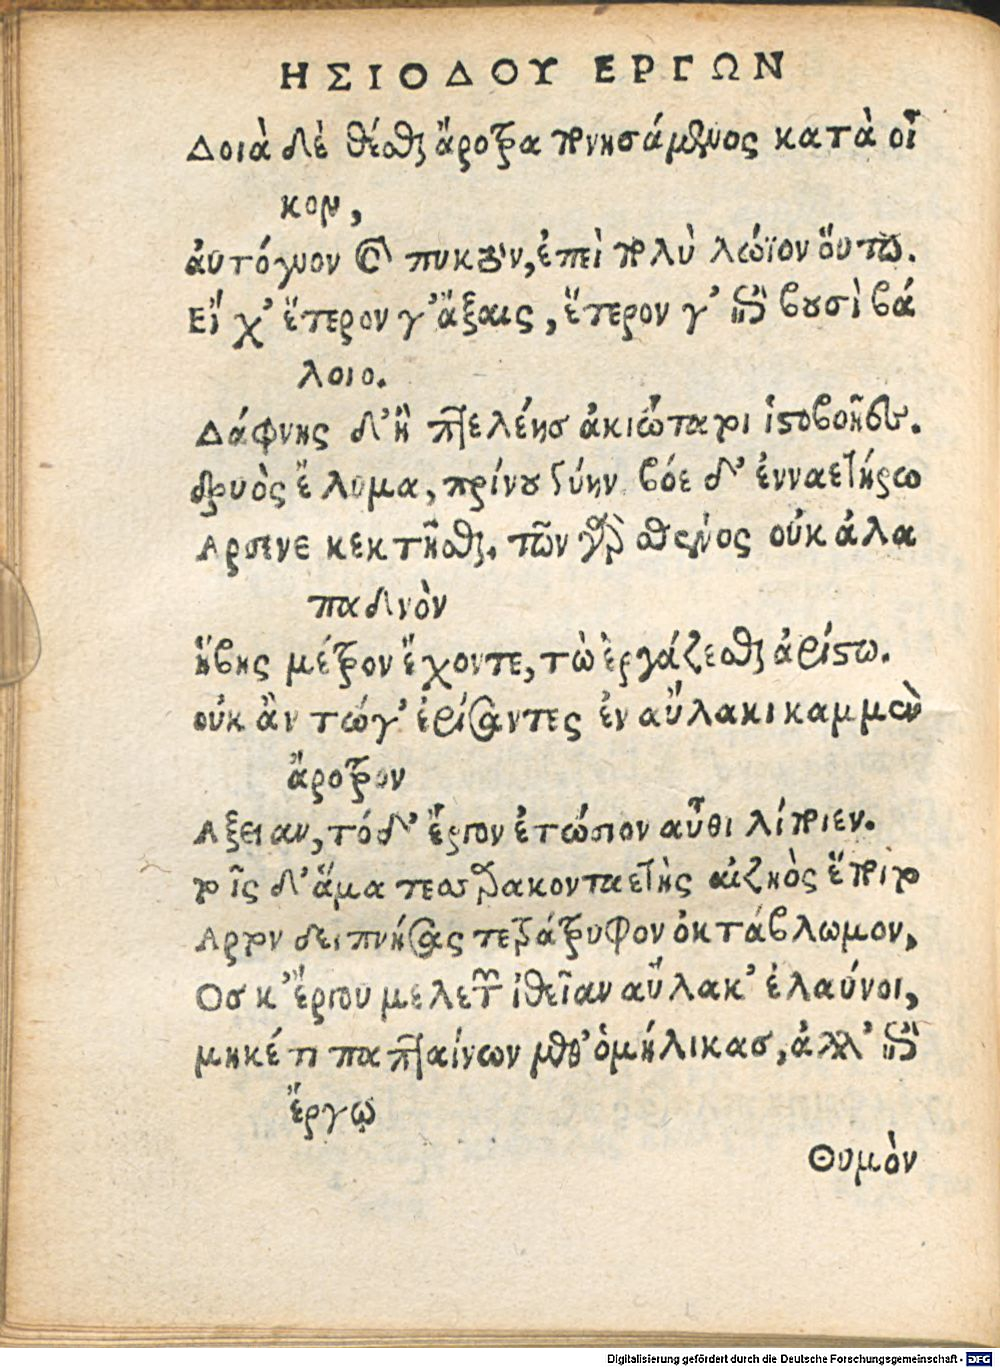 ΗΣΙΟΔΟΥ ΕΡΓΩΝ
Δοιὰ δὲ θέσθαι ἄροτρα πονησάμενος κατὰ οἶ
κον,
ἀυτόγυον καὶ πηκτόν, ἐπεὶ πολὺ λώϊον ὅυτω.
Εἴ χ' ἕτερον γ' ἄξαις, ἕτερον γ' ἐπὶ βουσὶ βά
λοιο.
Δάφνης δ' ἢ πτελέησ ἀκιώταροι ἱστοβοῆες.
δρυὸς ἔλυμα, πρίνου γύην βόε δ' ἐνναετήρω
Αρσενε κεκτῆσθαι. τῶν γὰρ σθένος οὐκ ἀλα
παδνὸν
ἥβης μέτρον ἔχοντε, τὼ ἐργάζεσθαι ἀρίστω.
οὐκ ἂν τώγ' ἐρίσαντες ἐν αὔλακι καμμὲν
ἄροτρον
Αξειαν, τό δ' ἔργον ἐτώσιον αὖθι λίποιεν.
τοῖς δ' ἅμα τεσσαρακονταετὴς αἰζηὸς ἕποιτο
Αρτον δειπνήσας τετράτρυφον ὀκτάβλωμον,
Οσ κ' ἔργου μελετῶν ἰθεῖαν αὔλακ' ἐλαύνοι,
μηκέτι παπταίνων μεθ' ὁμήλικασ, ἀλλ' ἐπὶ
ἔργῳ
Θυμὸν
Digitalisierung gefördert durch die Deutsche Forschungsgemeinschaft - DFG